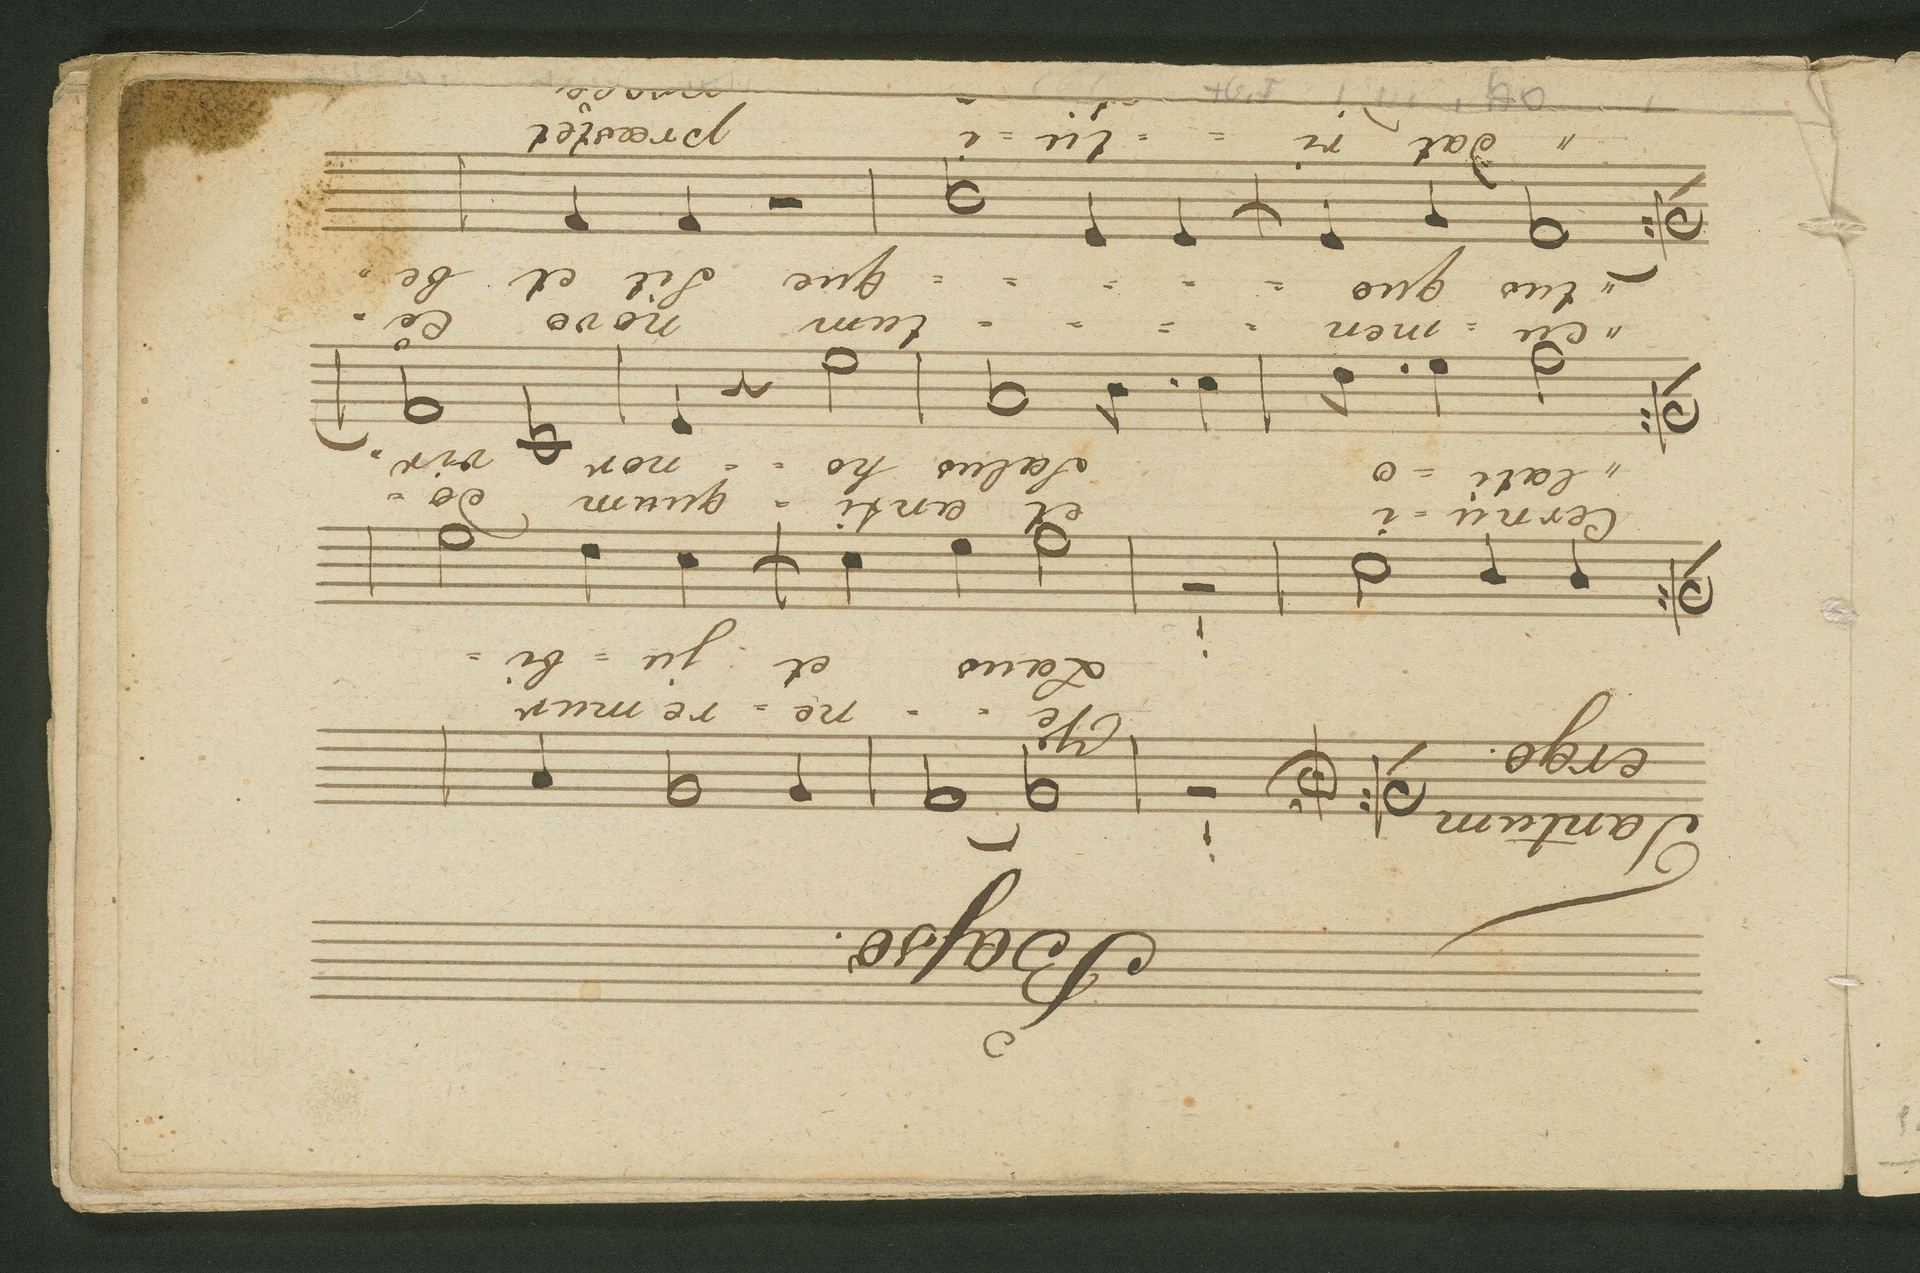 Baſso.
Tantum
ergo.
Ve - - ne = remur
Laus et ju = bi =
Cernu = i et anti - quum do =
" lati = o Salus ho = = nor vir "
" cu = men - - - - - tum novo ce -
" tus quo = = = = = que Sit et be "
" dat ri = = tu = i præstet